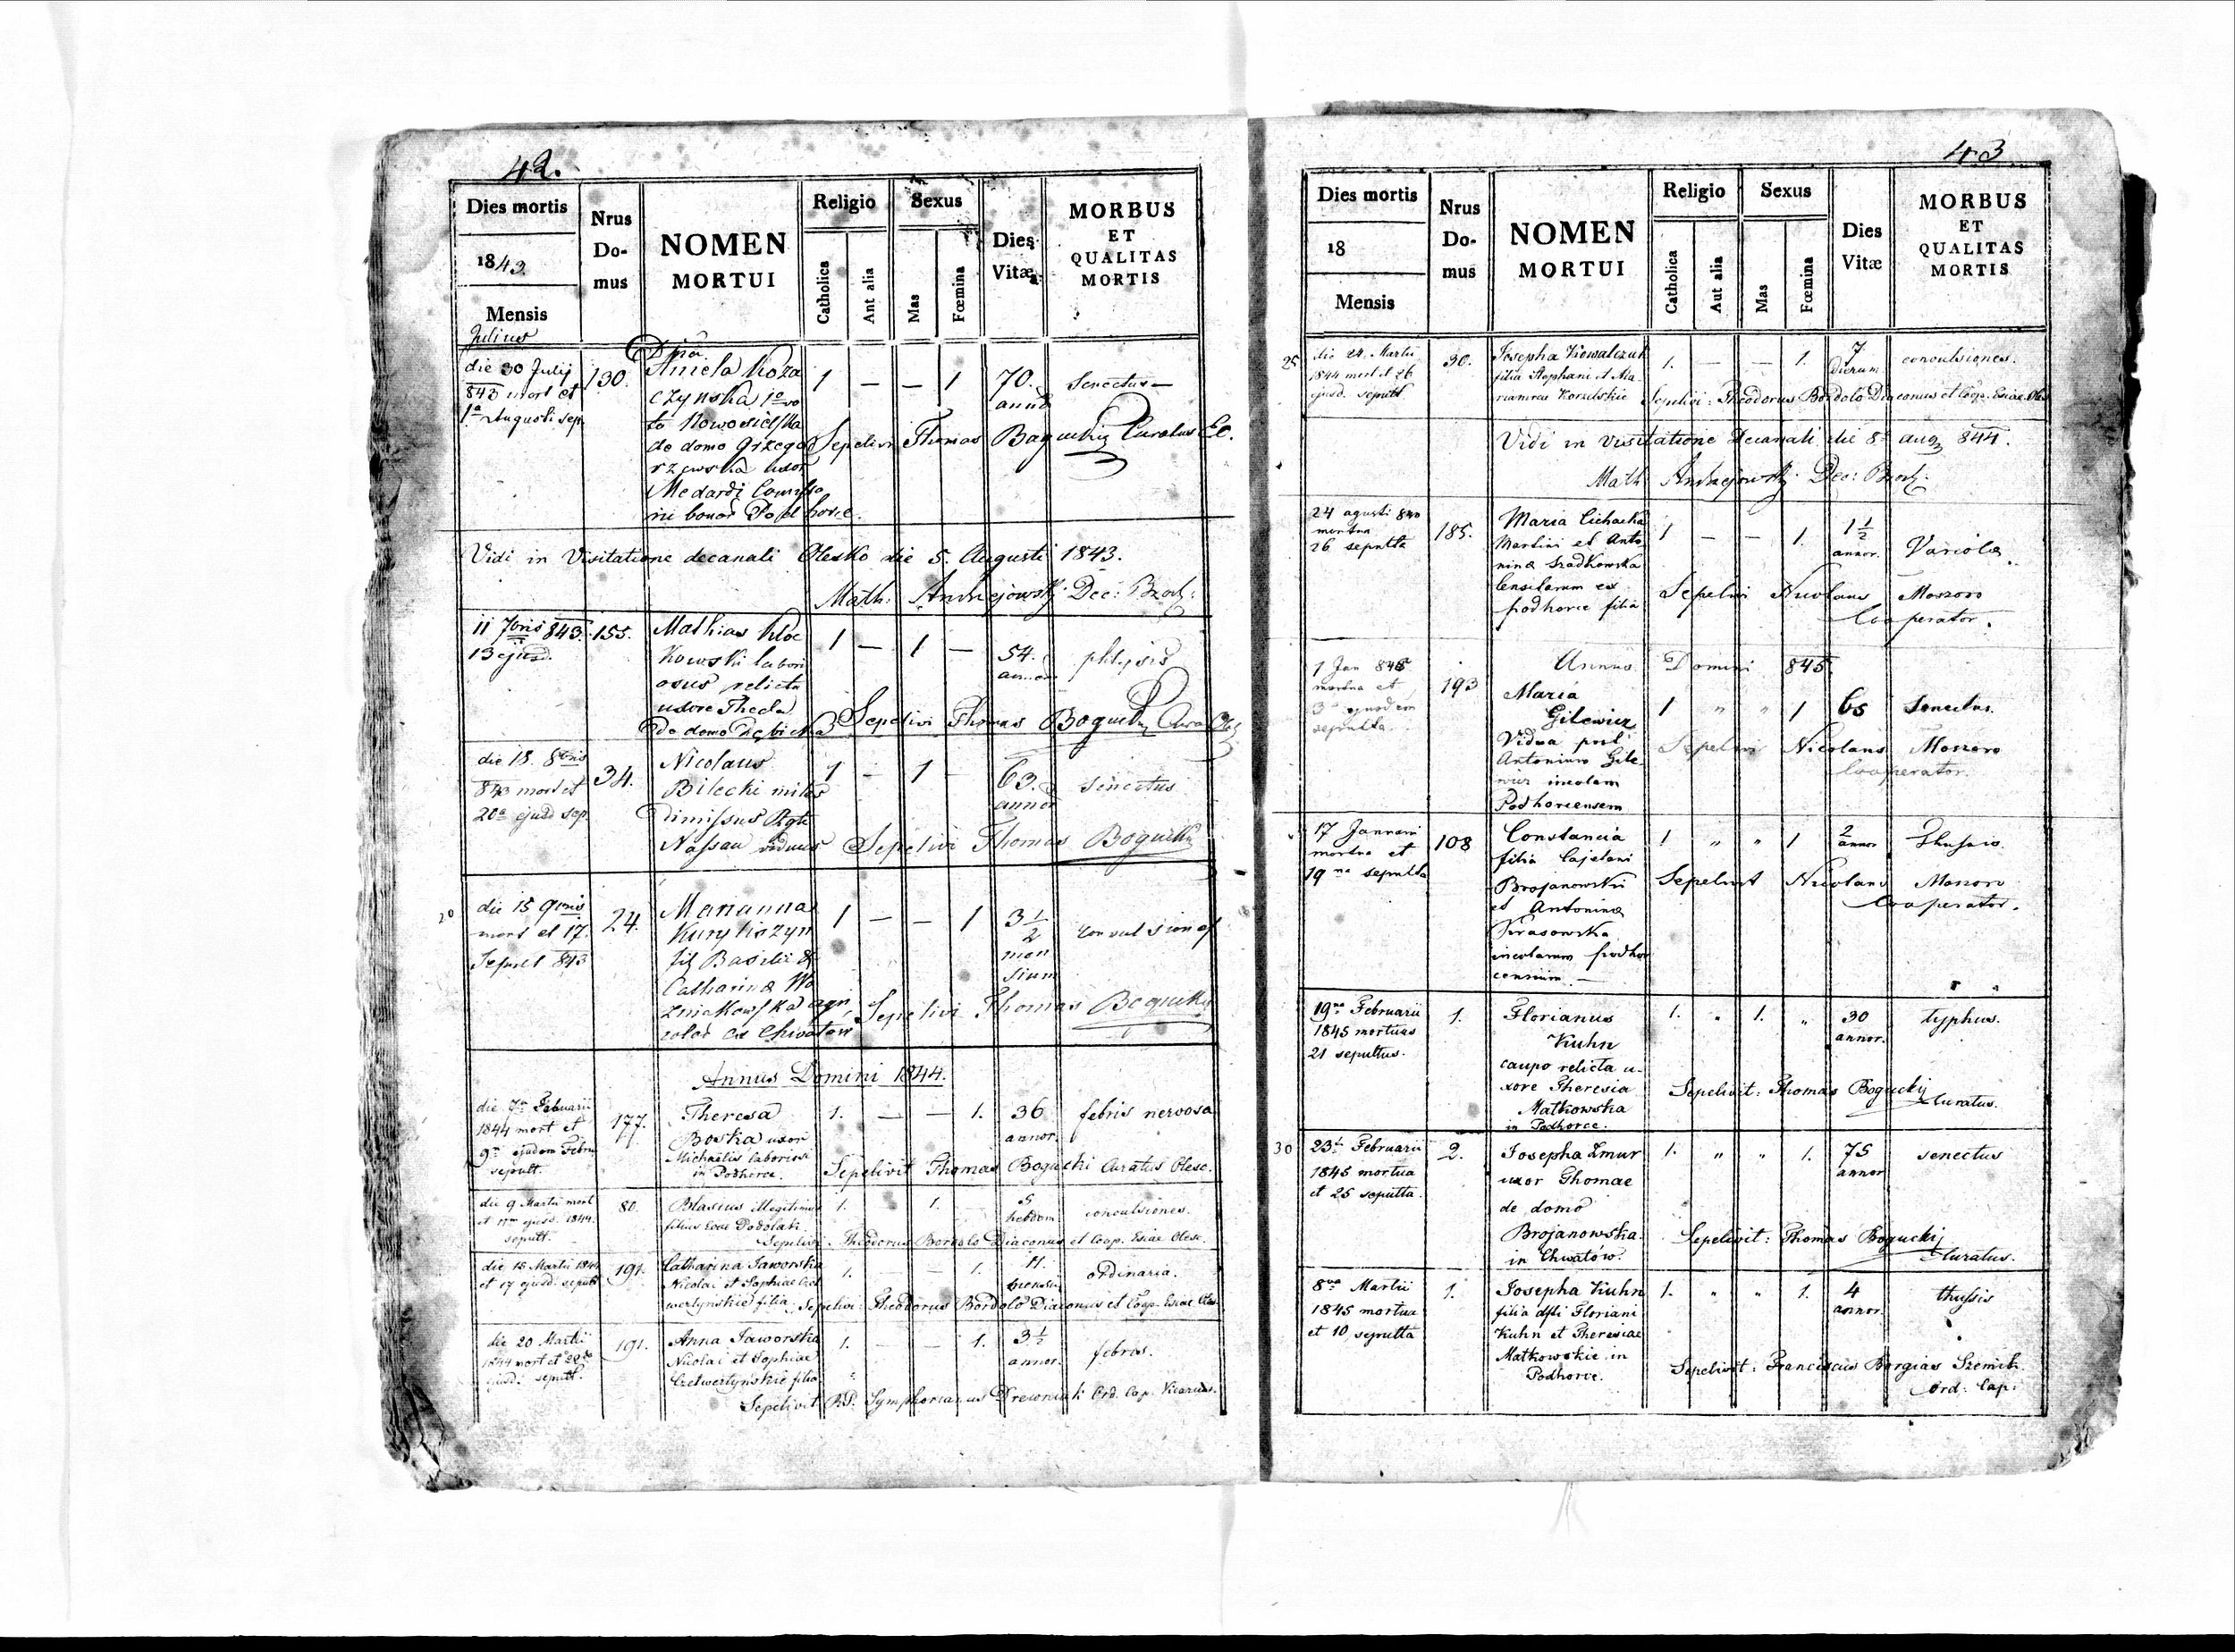 42.
Dies mortis
1843.
Mensis
Julius
Nrus Do-mus
NOMEN MORTUI
Religio
Catholica
Aut alia
Sexus
Mas
Fœmina
Dies Vitæ
MORBUS ET QUALITAS MORTIS
die 30 Julij 130. Aniela Koza 1 — — 1 70. Senectus —
843 mort et czynska 1o vo annor
1a Augusti sep. to Nowosielska
de domo Grzego Sepelivi Thomas Bogucki Curatus
rzewska uxor
Medardi
bonor Podhorce.
Vidi in Visitatione decanali Olesko die 5. Augusti 1843.
Math: Andrejowski Dec: Brod:
11 7bris 843. 155. Mathias Kloc 1 — 1 — 54. phtysis
13 ejusd. kowski labori annor
osus relicta
uxore Thecla
de domo Dębicka Sepelivi Thomas Bogucki
die 18. 8bris 34. Nicolaus 1 — 1 — 63. senectus
843 mort et Bilecki miles annor
20a ejusd sep. dimissus Rgte
Nassau viduus Sepelivi Thomas Bogucki
20 die 15 9bris 24. Marianna 1 — — 1 3 1/2 convulsiones
mort et 17. Kuryliszyn men
Sepult 843 fil Basilii & sium
Catharina Wo
zniakowska agri Sepelivi Thomas Bogucki
colar ex Chwatow
Annus Domini 1844.
die 7a Februarii 177. Theresa 1. — — 1. 36 febris nervosa
1844 mort et Boska uxor annor.
9a ejusdem Febru Michaelis laboriosi
sepult. in Podhorce. Sepelivit Thomas Bogucki Curatus Olesc.
die 9 Martii mort 80. Blasius illegitimus 1. 1. 5 convulsiones.
et 11ma ejusd. 1844. filius Evae Podolak. hebdom
sepult. Sepelivi: Theodorus Bordolo Diaconus et Coop. Esiae Olesc.
die 15 Martii 1844 191. Catharina Jaworska 1. — 1. 11. ordinaria.
et 17 ejusd. sepult Nicolai et Sophiae Czet mensiu
wertynskie filia Sepelivi: Theodorus Bordolo Diaconus et Coop. Esiae Oles.
die 20 Martii 191. Anna Jaworska 1. — — 1. 3 1/2 febris.
1844 mort et Nicolai et Sophiae annor.
ejusd. sepult. Czetwertynskie filia
Sepelivit RP. Symphorianus Drewniak Ord. Cap. Vicarius.
43
Dies mortis
18
Mensis
Nrus Do-mus
NOMEN MORTUI
Religio
Catholica
Aut alia
Sexus
Mas
Fœmina
Dies Vitæ
MORBUS ET QUALITAS MORTIS
25 die 24. Martii 30. Josepha Kowalczuk 1. — — 1. 7 convulsiones.
1844 mort et 26 filia Stephani et Ma- dierum
ejusd. sepult riannae Sepelivi: Theodorus Bordolo Diaconus et Coop. Esiae Oles
Vidi in visitatione Decanali die 8a aug 844.
Math Andrejowski Dec: Brod:
24 agusti 840 185. Maria Cichacka 1 — — 1. 1 1/2 Variola
mortua Martini et Anto annor.
26 sepulta nina Sradkowska
ex Sepelivi Nicolaus Moszoro
podhorce filia Cooperator.
Annus Domini 845.
1 Jan 845 193 Maria 1 " " 1 65 Senectus.
mortua et Gilewicz
3a ejusdem Vidua post Sepelivi Nicolaus Moszoro
sepulta. Antonium Gile Cooperator.
wicz incolam
Podhorcensem
17 Januarii 108 Constancia 1 " " 1 2 Thussis.
mortua et filia Cajetani annor
19na sepulta Brojanowski Sepelivit Nicolaus Moszoro
et Antonina Cooperator.
Krasowska
incolarum podhor
censium. —
19na Februarii 1. Florianus 1. " 1. " 30 typhus.
1845 mortuus Kuhn annor.
21 sepultus. caupo relicta u-
xore Theresia Sepelivit: Thomas Boguckij
Matkowska Curatus.
in Podhorce.
30 23a Februarii 2. Josepha Zmur 1. " " 1. 75 senectus
1845 mortua uxor Thomae annor
et 25 sepulta. de domo
Brojanowska. Sepelivit: Thomas Boguckij
in Chwatów. Curatus.
8va Martii 1. Josepha Kuhn 1. " " 1. 4 thussis
1845 mortua filia dfti Floriani annor.
et 10 sepulta Kuhn et Theresiae
Matkowskie in Sepelivit: Franciscus Borgias Szemik
Podhorce. Ord: Cap: